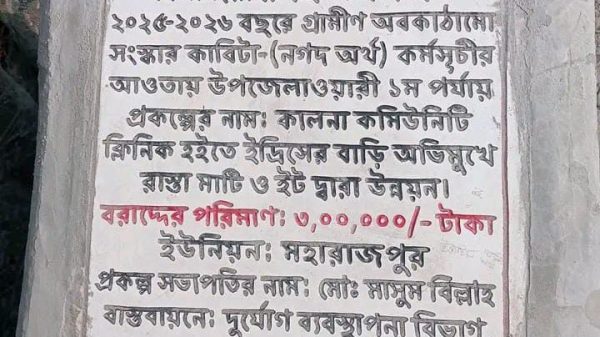 ২০২৫-২০২৬ বছরে গ্রামীণ অবকাঠামো
সংস্কার কাবিটা-(নগদ অর্থ) কর্মসূচীর
আওতায় উপজেলাওয়ারী ১ম পর্যায়
প্রকল্পের নাম: কালনা কমিউনিটি
ক্লিনিক হইতে ইদ্রিসের বাড়ি অভিমুখে
রাস্তা মাটি ও ইট দ্বারা উন্নয়ন।
বরাদ্দের পরিমাণ: ৩,০০,০০০/- টাকা
ইউনিয়ন: মহারাজপুর
প্রকল্প সভাপতির নাম: মোঃ মাসুম বিল্লাহ
বাস্তবায়নে: দুর্যোগ ব্যবস্থাপনা বিভাগ